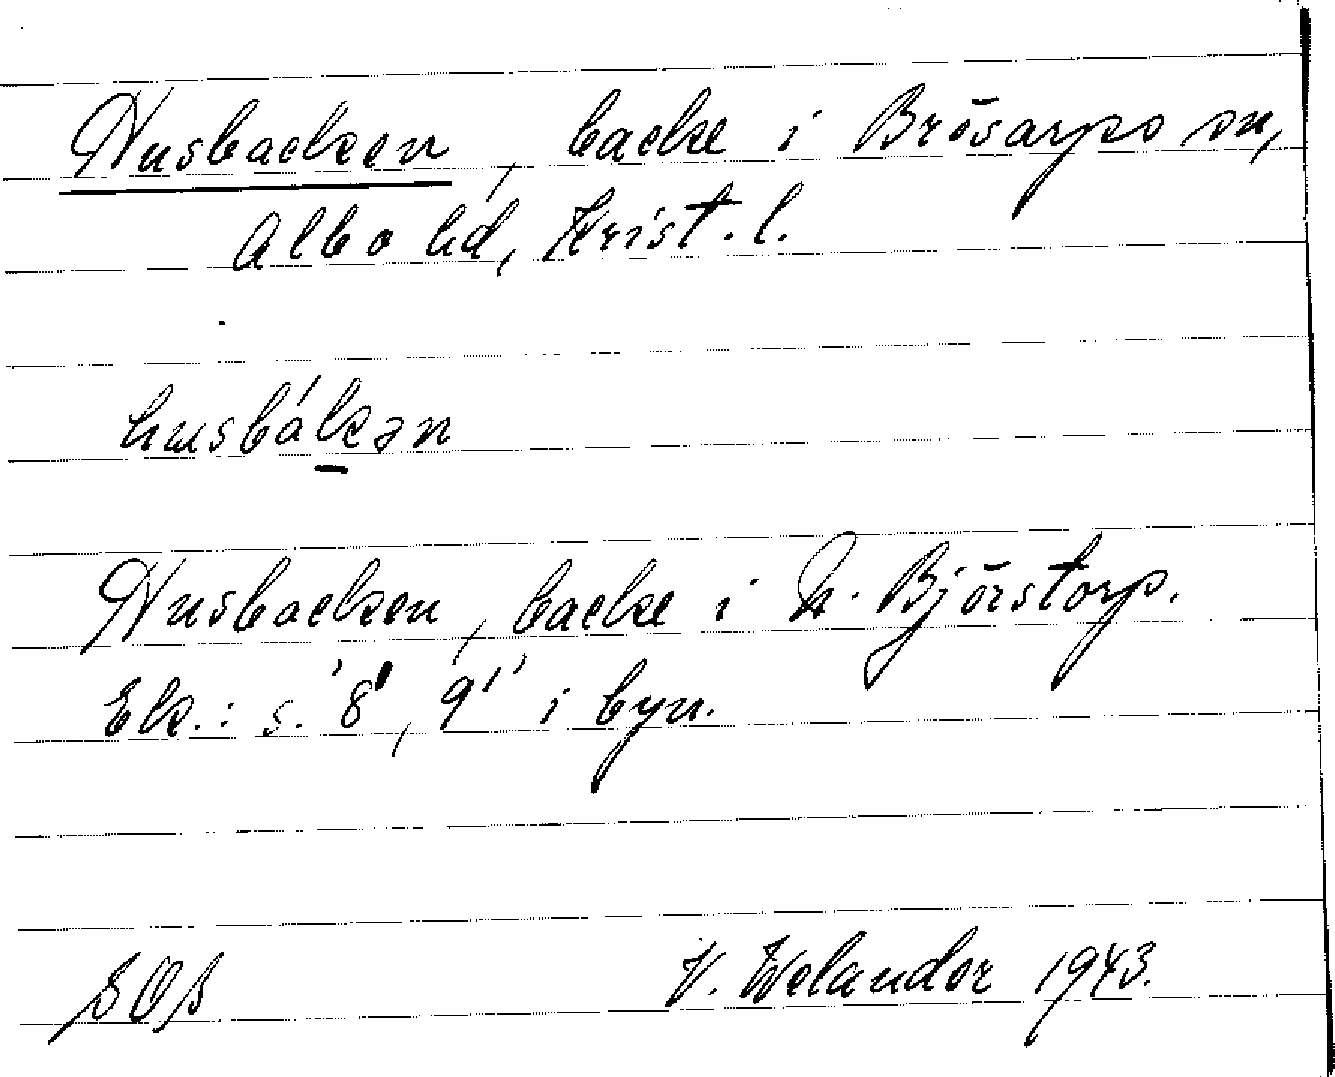 Husbacken, backe i Brösarps sn,
Albo hd, Krist. l.
husbákən
Husbacken, backe i N. Björstorp.
Ek.: s. 8', 9'' i byn.
SOB
V. Welander 1943.